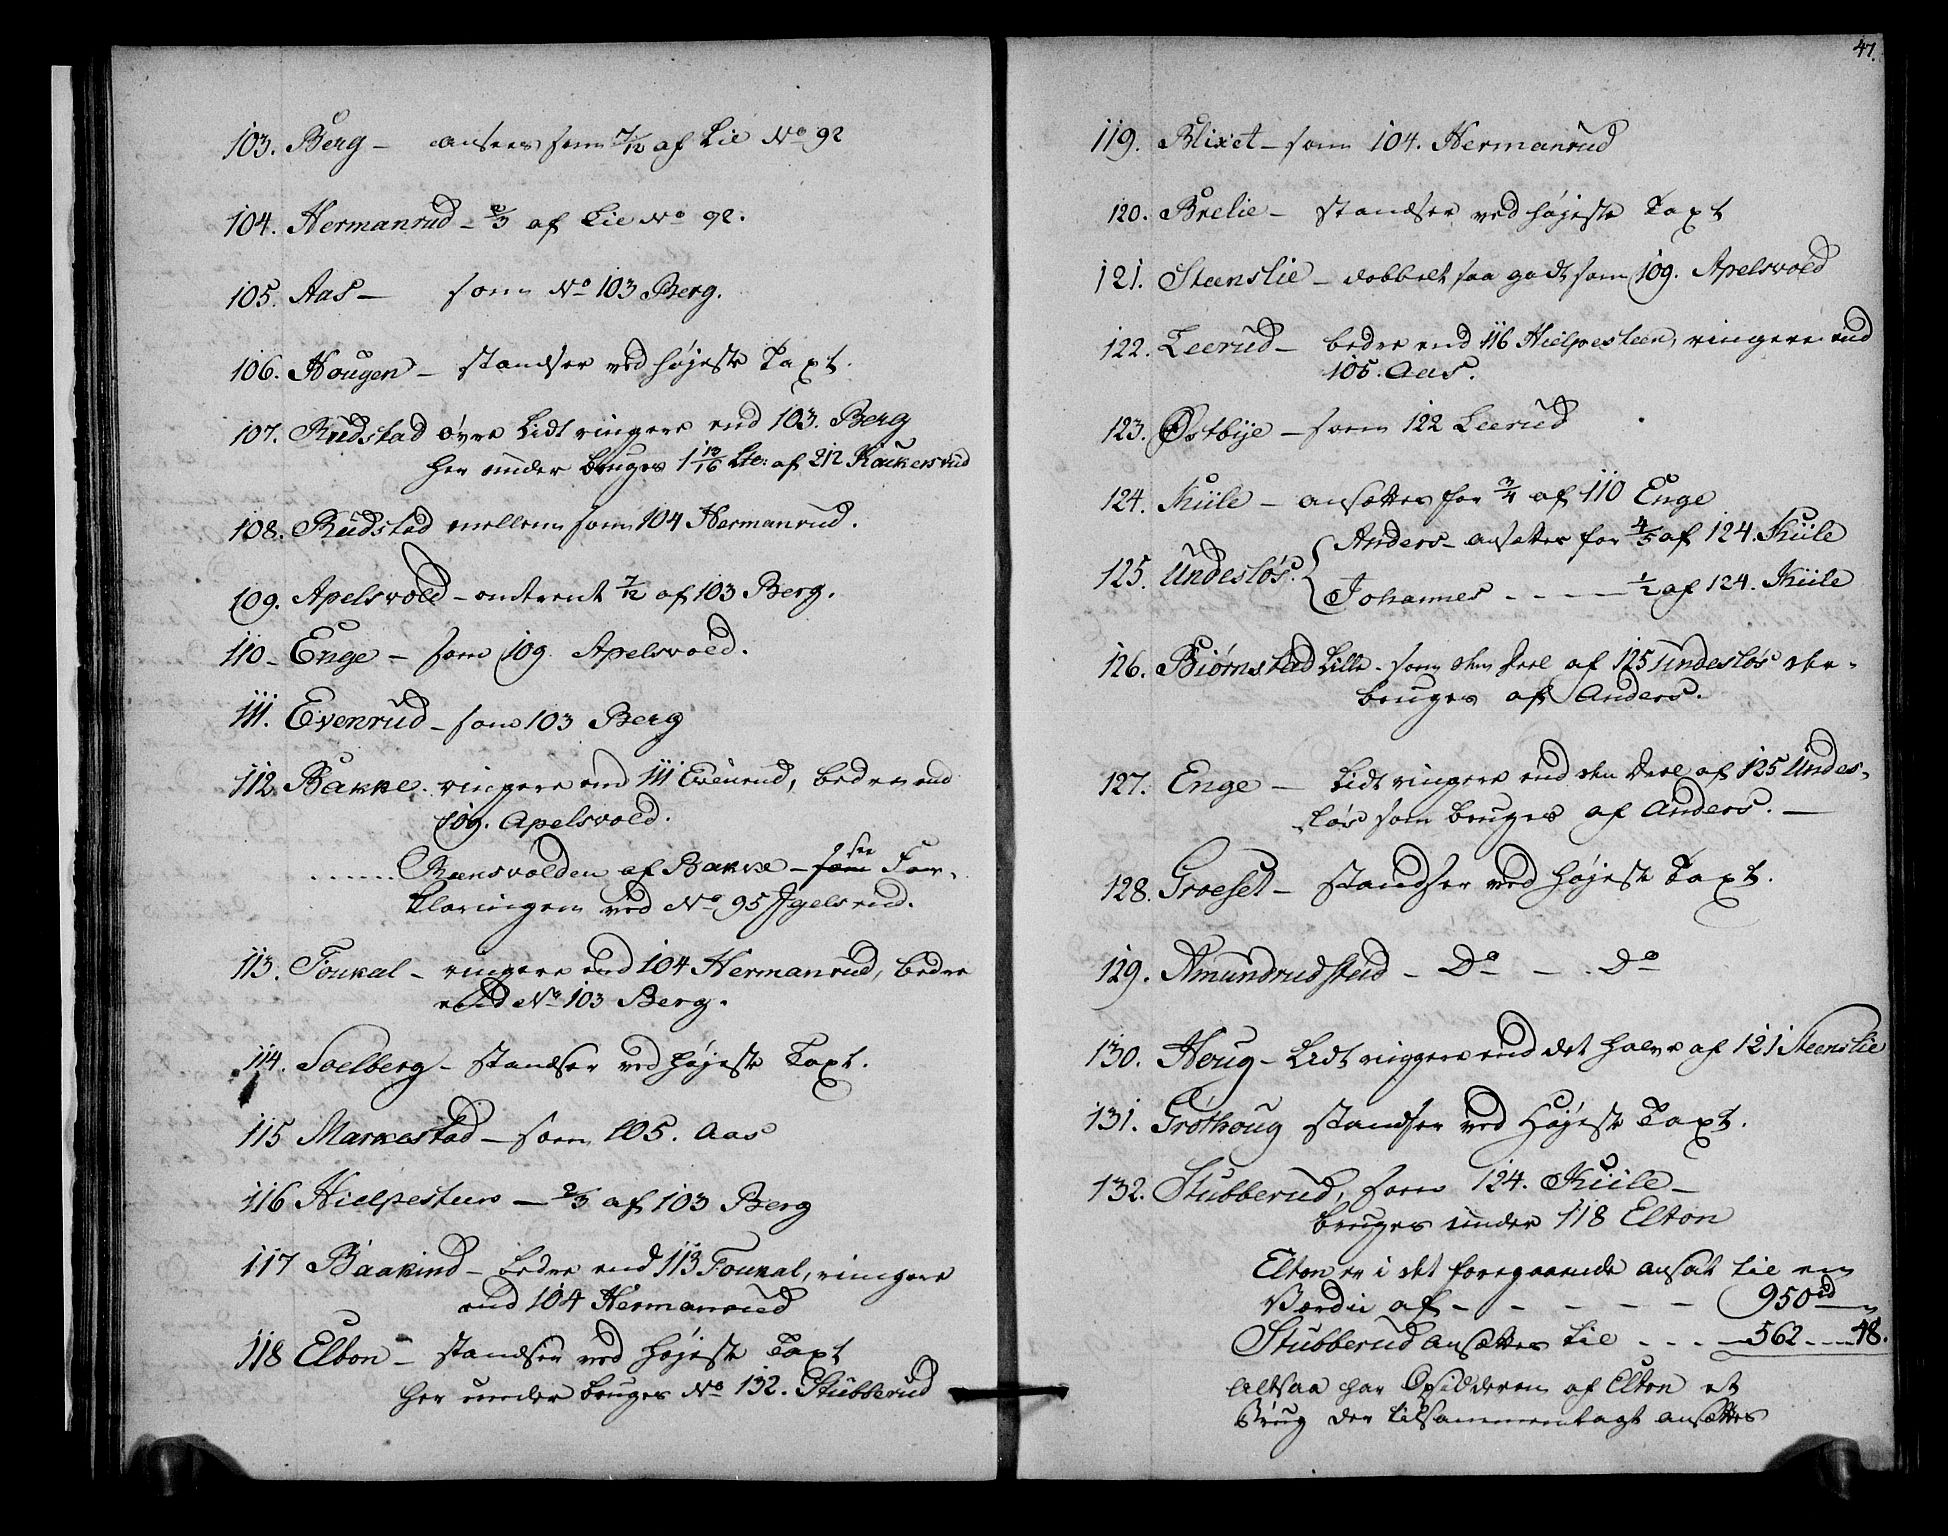 103. Berg – ansees som 7/12 af Lie No 92
104. Hermanrud – 2/3 af Lie No 92.
105. Aas – som No 103 Berg.
106. Hougen – standser ved højeste Taxt.
107. Rudstad övre Lidt ringere end 103. Berg
her under bruges 1 13/16 Lb: af 212 Kackersrud
108. Rudstad mellem som 104 Hermanrud.
109. Apelsvold – omtrent 7/12 af 103 Berg.
110 – Enge – som 109. Apelsvold.
111. Evenrud – som 103 Berg
112 Bakke. ringere end 111 Evenrud, bedre end
109. Apelsvold.
...... Rænsvolden af Bakke – see For-
klaringen ved No 95 Igelsrud.
113. Foukal – ringere end 104 Hermanrud, bedre
end No 103 Berg.
114. Soelberg – standser ved højeste Taxt.
115 Markestad – som 105. Aas
116 Hielpesteen – 2/3 af 103 Berg
117 Baakind – bedre end 113 Foukal, ringere
end 104 Hermanrud
118 Elton – standser ved højeste Taxt
her under bruges No 132. Stubberud
47.
119. Blixet – som 104. Hermanrud
120. Brelie – standser ved højeste Taxt
121. Steenslie – dobbelt saa godt som 109. Apelsvold
122. Leerud – bedre end 116 Hielpesteen, ringere end
105. Aas.
123. Østbije – som 122 Leerud
124. Kiile – ansættes for 3/4 af 110 Enge
Anders – ansættes for 4/5 af 124. Kiile
125. Undesløs.
Johannes - - - – 1/2 af 124. Kiile
126. Biørnstad Lille – som den Deel af 125 Undesløs der
bruges af Anders.
127. Enge – Lidt ringere end den Deel af 125 Undes-
løs som bruges af Anders. –
128. Groeset – standser ved højeste Taxt.
129. Amundrudstad – Do – . Do
130. Houg – Lidt ringere end det halve af 121 Steenslie
131. Grøthoug standser ved Højeste Taxt.
132. Stubberud, som 124. Kiile –
bruges under 118 Elton
Elton er i det foregaaende ansat til en
Værdie af – – – – – 950 rd „
Stubberud ansættes til - - - 562 - - 48.
Altsaa har Opsidderen af Elton et
Brug der tilsammentagt ansættes